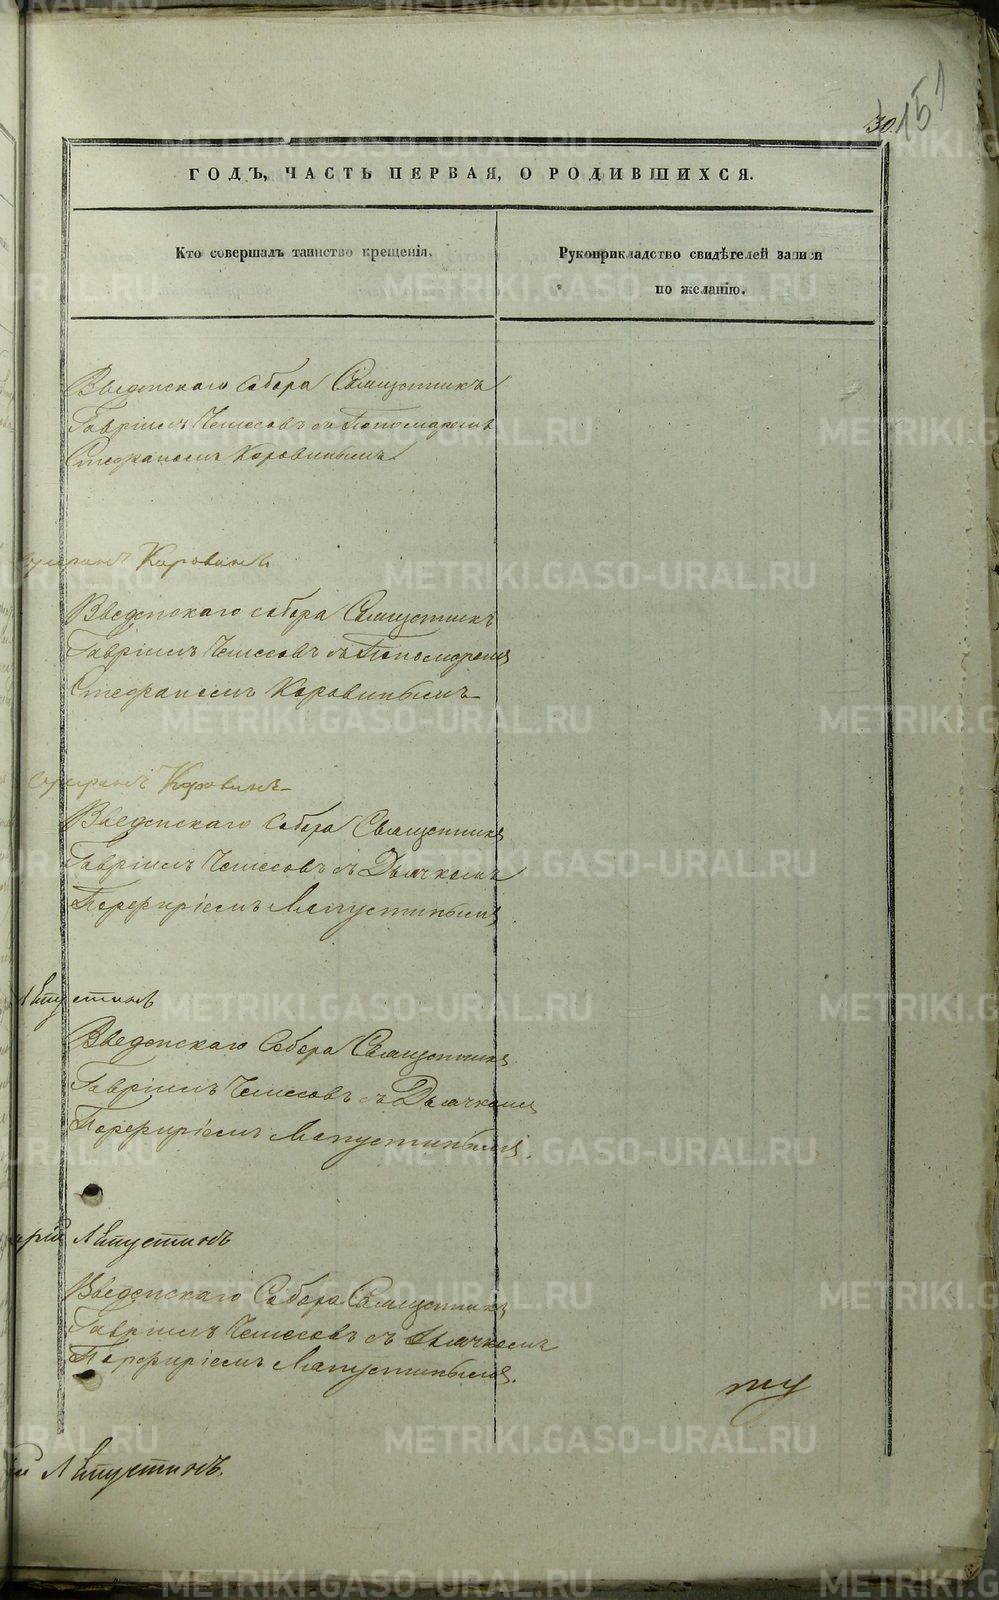 30.
151
ГОДЪ, ЧАСТЬ ПЕРВАЯ, О РОДИВШИХСЯ.
Кто совершалъ таинство крещенія.
Рукоприкладство свидѣтелей записи
по желанію.
Введенскаго Собора Священникъ
Гавріилъ Чемесовъ съ Пономаремъ
Стефаномъ Коровинымъ
Коровинъ
Введенскаго собора Священникъ
Гавріилъ Чемесовъ съ Пономаремъ
Стефаномъ Коровинымъ
Коровинъ
Введенскаго Собора Священникъ
Гавріилъ Чемесовъ съ Дьячкомъ
Порфиріемъ Лапустинымъ
Введенскаго Собора Священникъ
Гавріилъ Чемесовъ съ Дьячкомъ
Порфиріемъ Лапустинымъ.
рій Лапустинъ
Введенскаго Собора Священникъ
Гавріилъ Чемесовъ съ Дьячкомъ
Порфиріемъ Лапустинымъ.
й Лапустинъ.
METRIKI.GASO-URAL.RU